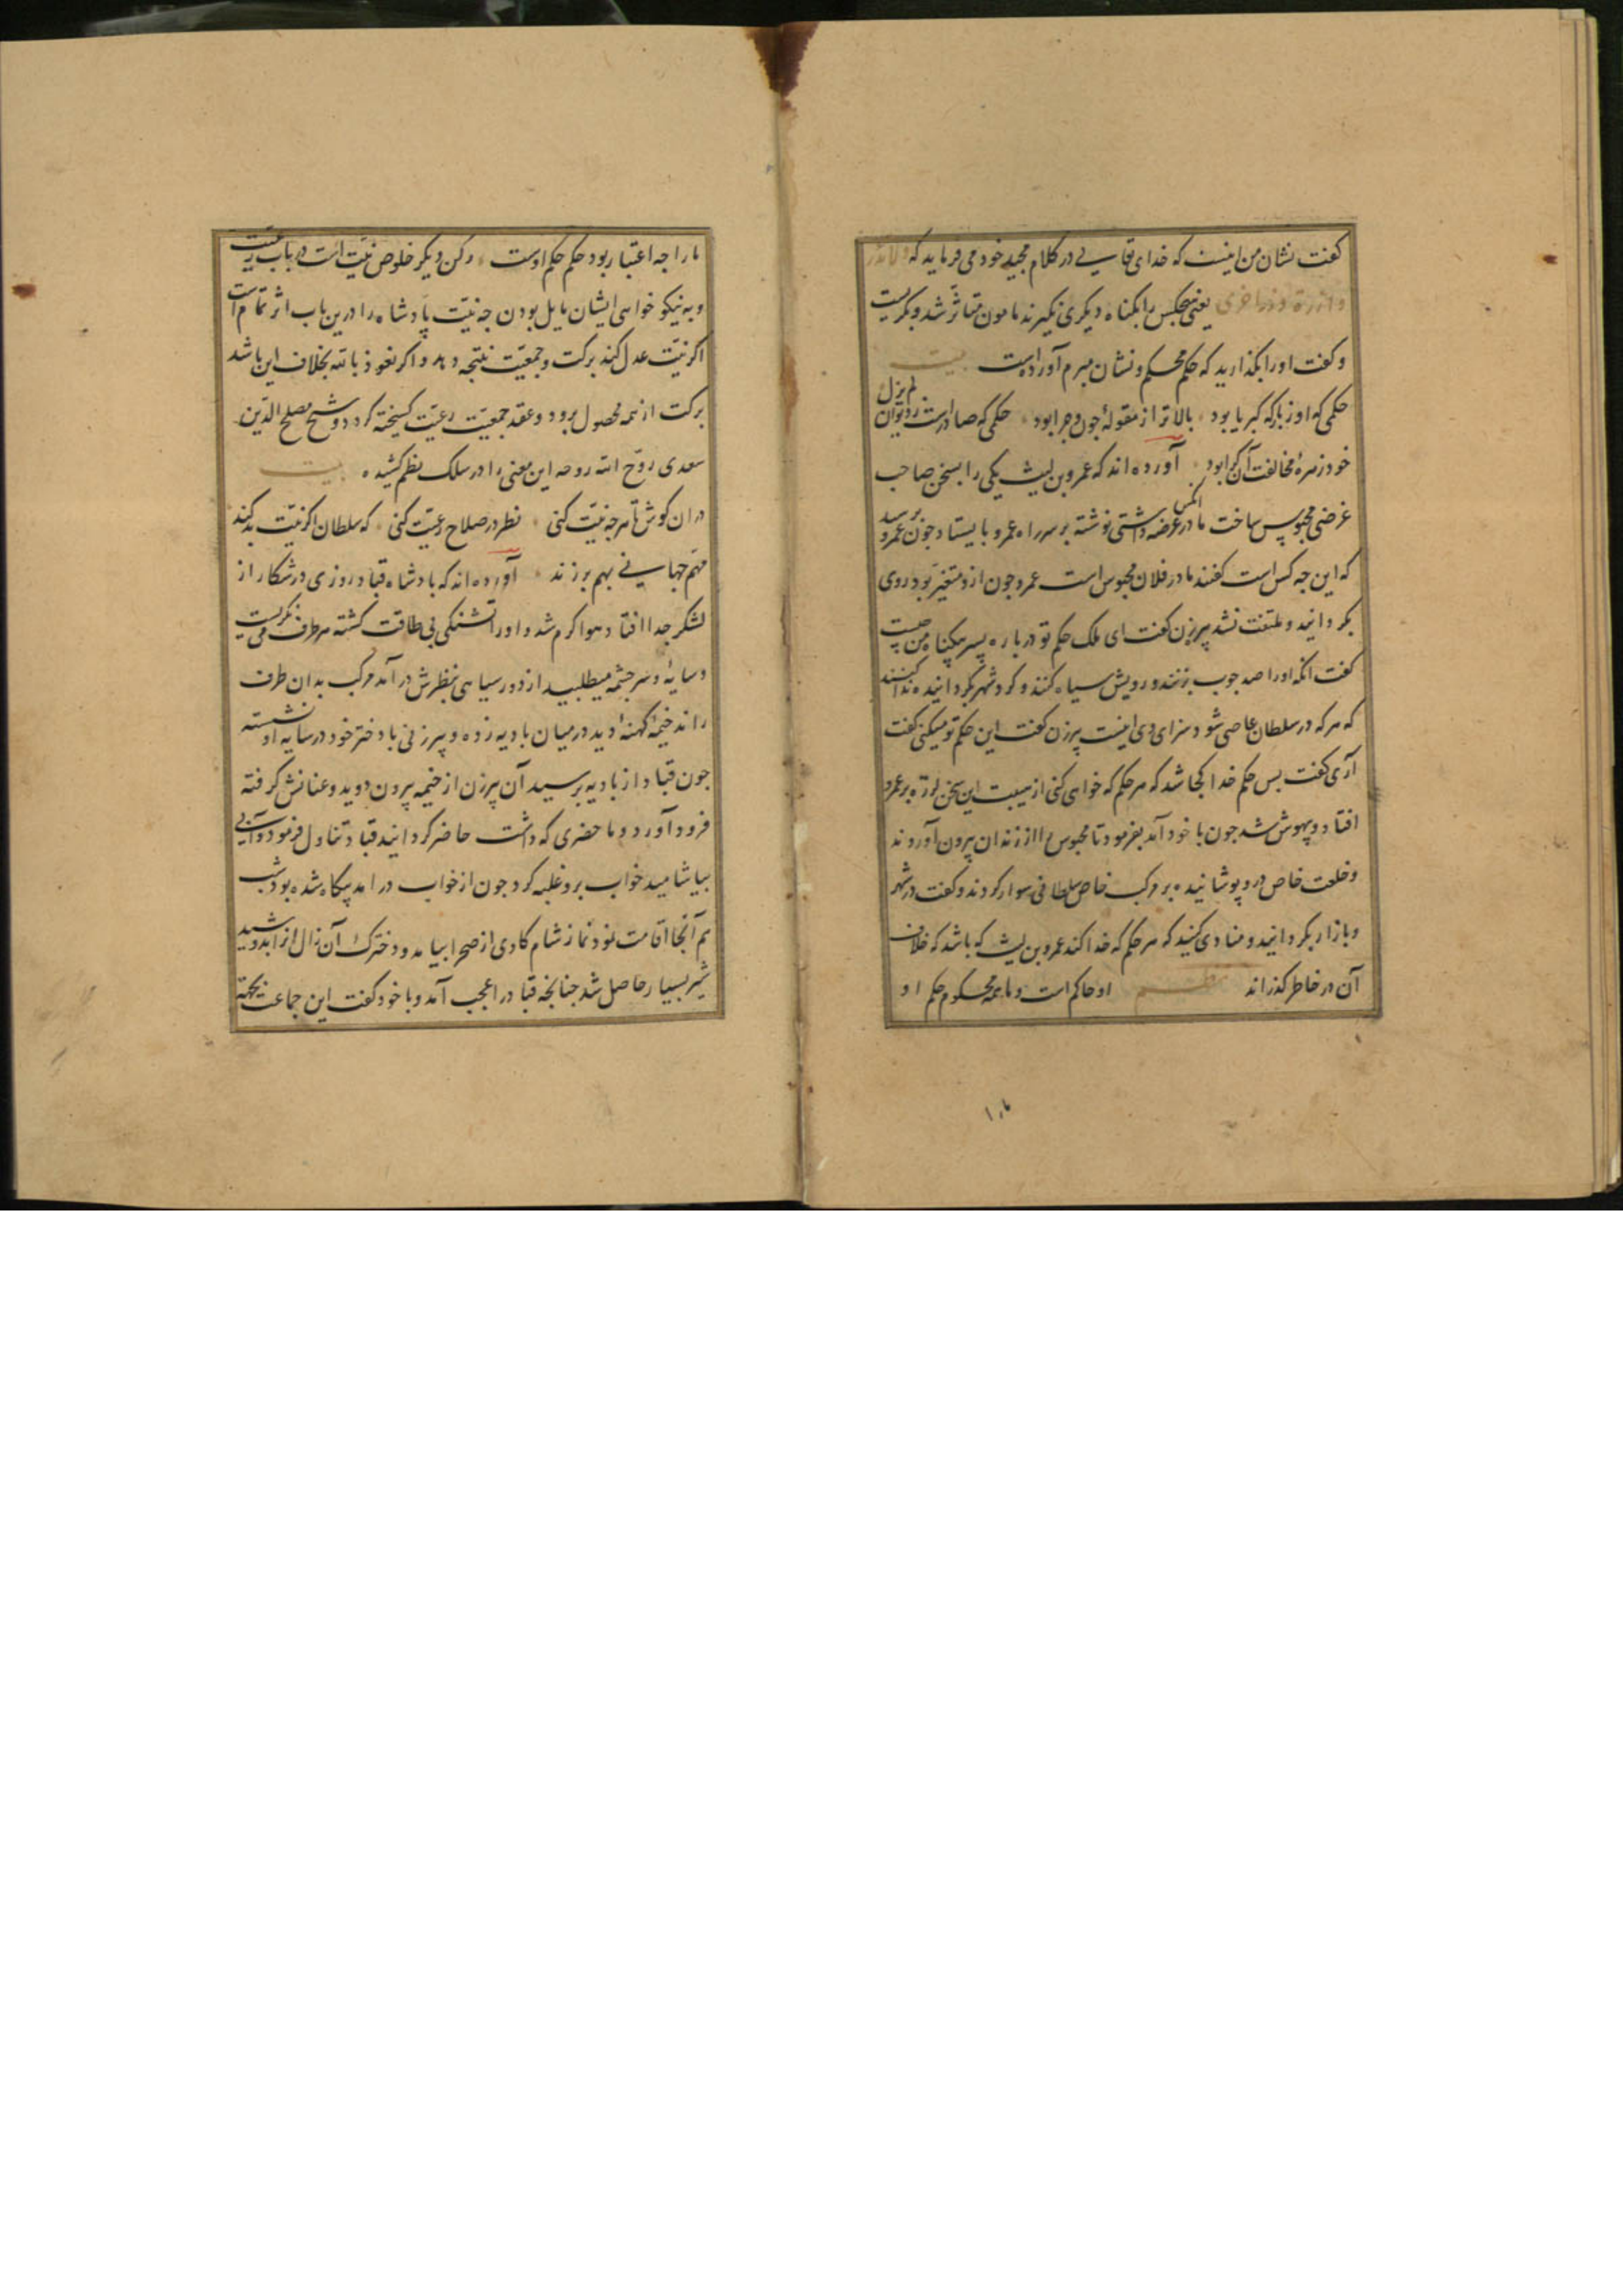 کفت نشان من اینست که خدای تعالی در کلام مجید خود می فرماید که ولا تزر
وازرة وزر اخری یعنی هیچکس را بکناه دیکری نکیرند مامون متاثر شد و بکریست
و کفت او را بکذارید که حکم محکم و نشان مبرم آورده است بیت
حکمی که او ز بارکه کبریا بود بالاتر از مقوله چون و چرا بود حکمی که صادرست ز دیوان لم یزل
خود زهرهٔ مخالفت آن کرا بود آورده اند که عمرو بن لیث یکی را بسخن صاحب
غرضی محبوس ساخت مادر آنکس عرضه داشتی نوشته بر سر راه عمرو بایستاد چون عمرو برسید
که این چه کس است کفتند مادر فلان محبوس است عمرو چون ازو متغیر بود روی
بکردانید و ملتفت نشد پیرزن کفت ای ملک حکم تو درباره پسر بیکناه من چیست
کفت آنکه او را صد چوب بزنند و رویش سیاه کنند و کرد شهر بکردانیده ندا کنند
که هر که در سلطان عاصی شود سزای وی اینست پیرزن کفت این حکم تو میکنی کفت
آری کفت پس حکم خدا کجا شد که هر حکم که خواهی کنی از هیبت این سخن لرزه بر عمرو
افتاد و بیهوش شد چون با خود آمد بفرمود تا محبوس را از زندان بیرون آوردند
و خلعت خاص درو پوشانیده بر مرکب خاص سلطانی سوار کردند و کفت در شهر
و بازار بکردانید و منادی کنید که هر حکم که خدا کند عمرو بن لیث که باشد که خلاف
آن در خاطر کذراند نظم او حاکم است و ما همه محکوم حکم او
ما را
ما را چه اعتبار بود حکم حکم اوست رکن دیکر خلوص نیت است در باب رعیت
و به نیکو خواهی ایشان مایل بودن چه نیت پادشاه را درین باب اثر تمام است
اکر نیت عدل کند برکت و جمعیت نتیجه دهد و اکر نعوذ بالله بخلاف این باشد
برکت از همه محصول برود و عقد جمعیت رعیت کسیخته کردد و شیخ مصلح الدین
سعدی روح الله روحه این معنی را در سلک نظم کشیده بیت
دران کوش تا هر چه نیت کنی نظر در صلاح رعیت کنی که سلطان اکر نیت بد کند
مهم جهانی بهم برزند آورده اند که پادشاه قباد روزی در شکار از
لشکر جدا افتاد هوا کرم شد و او را تشنکی بی طاقت کشته هر طرف می نکریست
و سایهٔ و سر چشمه میطلبید از دور سیاهی بنظرش درآمد مرکب بدان طرف
راند خیمهٔ کهنهٔ دید در میان بادیه زده و پیرزنی با دختر خود در سایه او نشسته
چون قباد از بادیه برسید آن پیرزن از خیمه بیرون دوید و عنانش کرفته
فرود آورد و ما حضری که داشت حاضر کردانید قباد تناول فرمود و آبی
بیاشامید خواب برو غلبه کرد چون از خواب درآمد بیکاه شده بود شب
هم آنجا اقامت نمود نماز شام کاوی از صحرا بیامد و دخترک آن زال آنرا بدوشید
شیر بسیار حاصل شد چنانچه قباد را عجب آمد و با خود کفت این جماعت بجهة